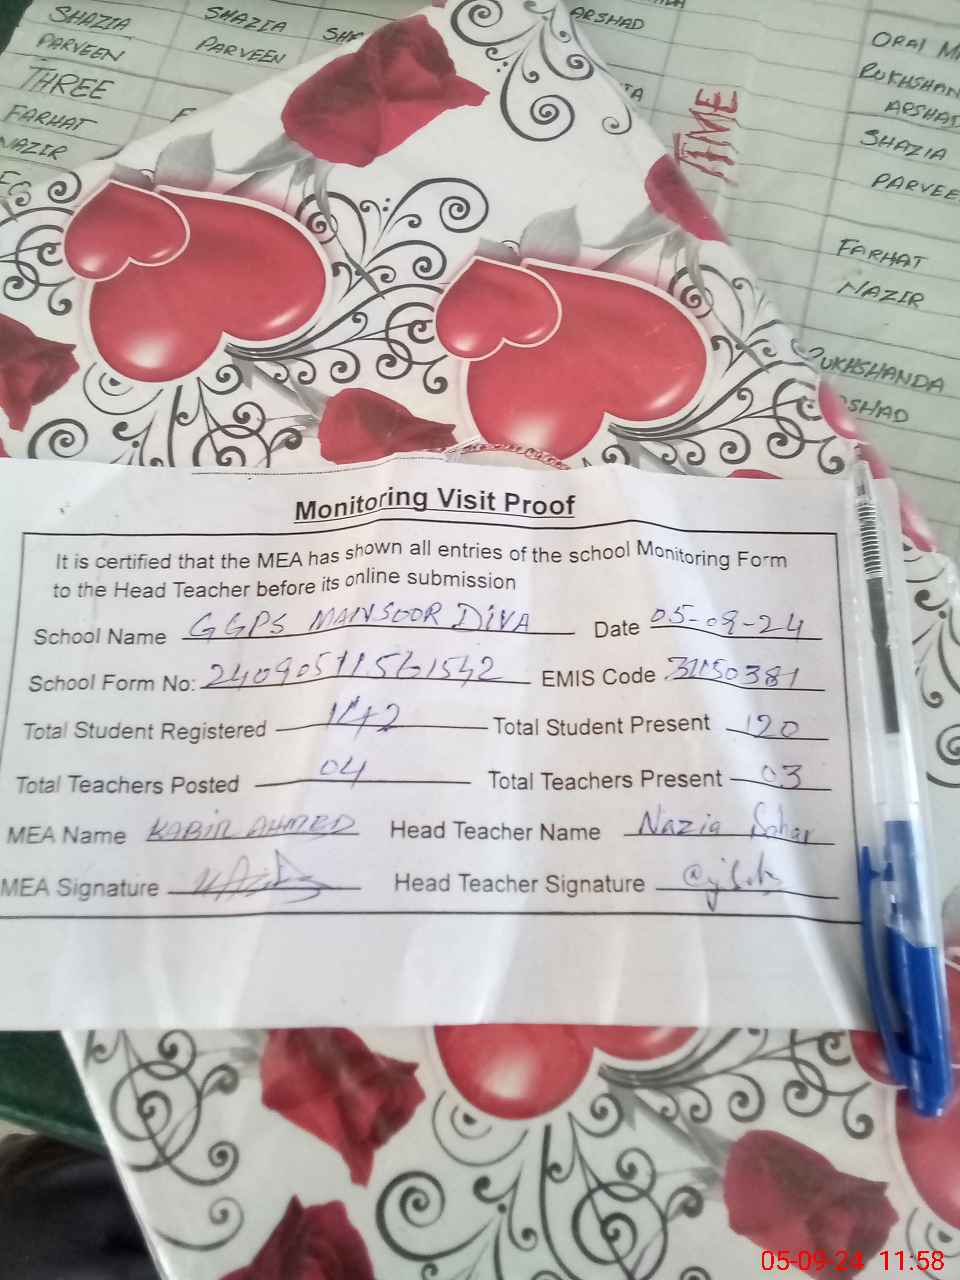 SHAZIA SHAZIA
PARVEEN PARVEEN
THREE
FARHAT
NAZIR
ARSHAD
TIME
ORAI
RUKHSHAN
ARSHAD
SHAZIA
PARVEE
FARHAT
NAZIR
RUKHSHANDA
SHAD
Monitoring Visit Proof
It is certified that the MEA has shown all entries of the school Monitoring Form
to the Head Teacher before its online submission
School Name GGPS MANSOOR DIVA Date 05-09-24
School Form No: EMIS Code 31150381
Total Student Registered 142 Total Student Present 120
Total Teachers Posted 04 Total Teachers Present 03
MEA Name KABIR AHMED Head Teacher Name Nazia Sahar
MEA Signature Head Teacher Signature
05-09-24 11:58